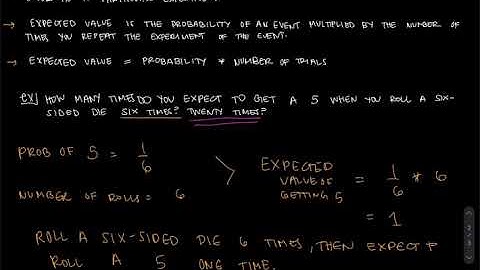 → EXPECTED VALUE IS THE PROBABILITY OF AN EVENT MULTIPLIED BY THE NUMBER OF
TIMES YOU REPEAT THE EXPERIMENT OF THE EVENT.
→ EXPECTED VALUE = PROBABILITY * NUMBER OF TRIALS
EX) HOW MANY TIMES DO YOU EXPECT TO GET A 5 WHEN YOU ROLL A SIX-
SIDED DIE SIX TIMES? TWENTY TIMES?
PROB OF 5 = 1/6
NUMBER OF ROLLS = 6
> EXPECTED VALUE OF GETTING 5 = 1/6 * 6
= 1
ROLL A SIX-SIDED DIE 6 TIMES, THEN EXPECT
ROLL A 5 ONE TIME.